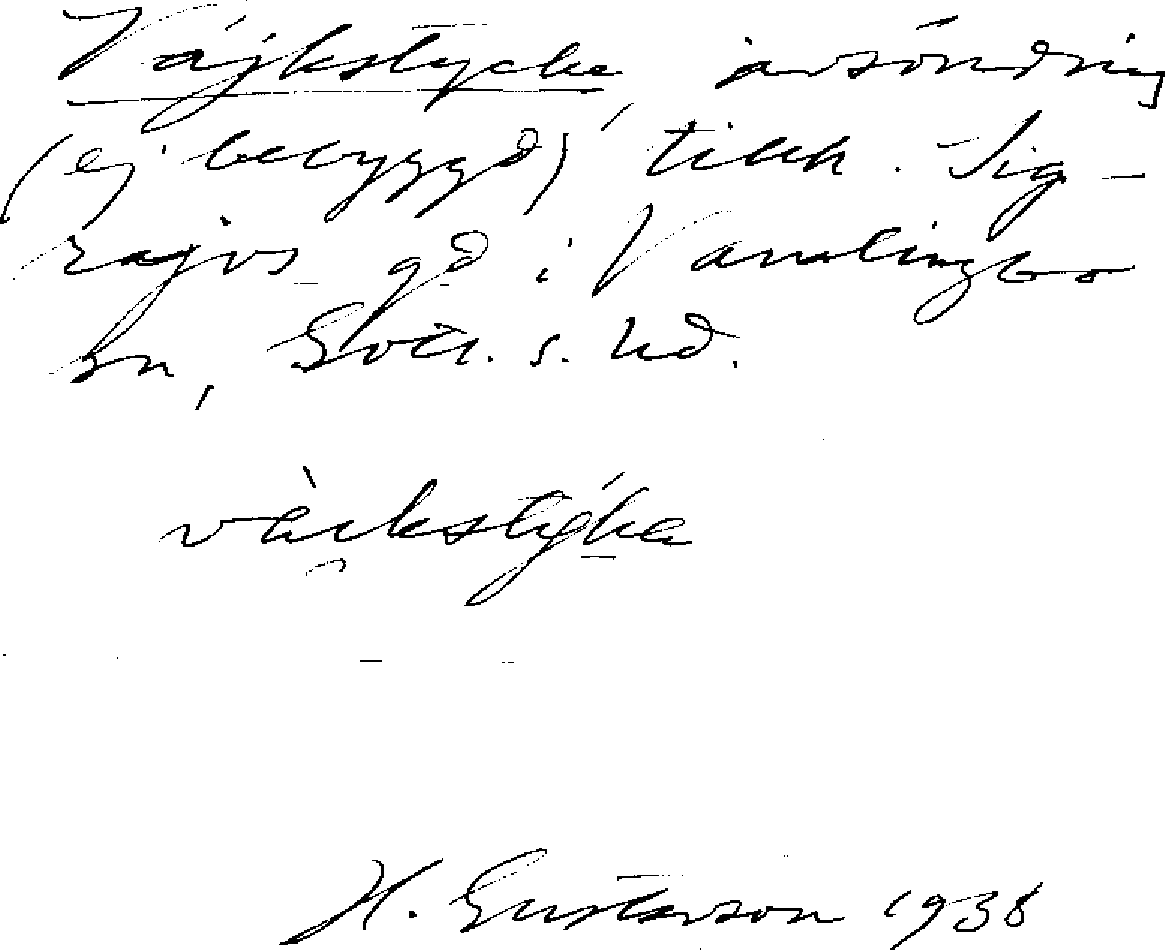 Vajkstycke, avsöndring
(ej bebyggd) tillh. Sig-
rajvs gd i Vamlingbo
sn, Gotl. s. hd.
vàikstýka
H. Gustavson 1938